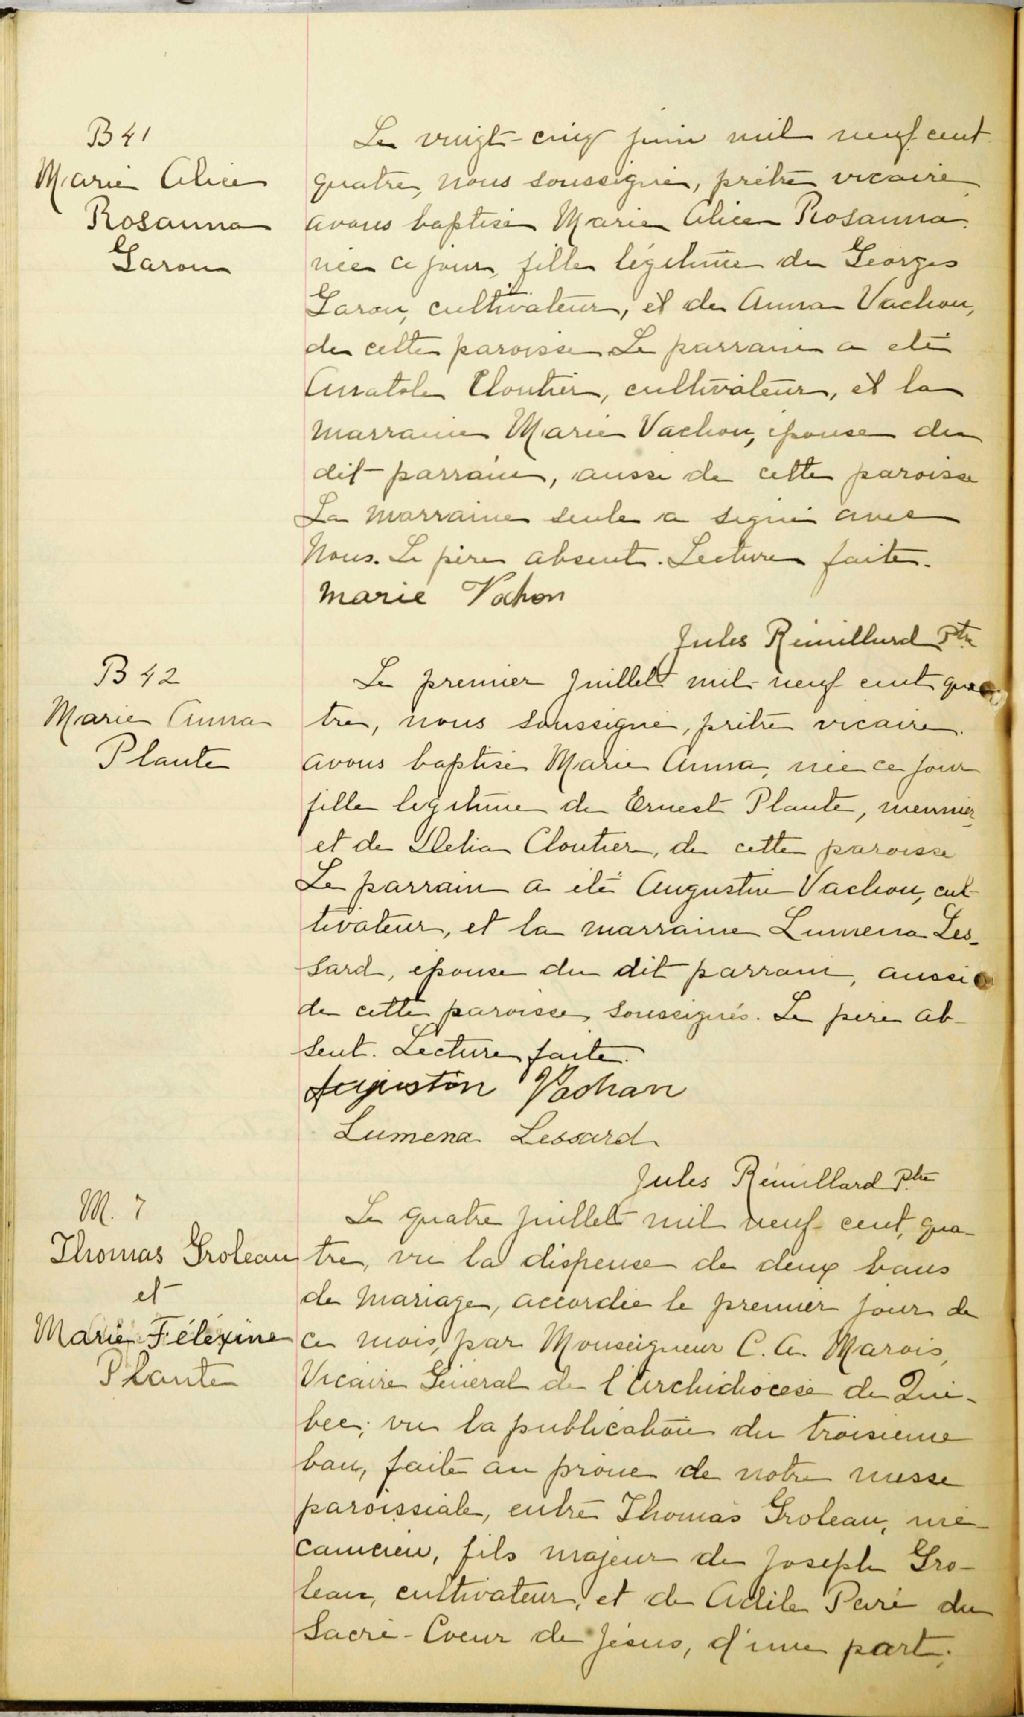 B 41
Marie Alice
Rosanna
Garon
Le vingt-cinq juin mil neuf cent
quatre, nous soussigné, prêtre vicaire
avons baptisé Marie Alice Rosanna
née ce jour, fille légitime de Georges
Garon, cultivateur, et de Anna Vachon,
de cette paroisse. Le parrain a été
Anatole Cloutier, cultivateur, et la
marraine Marie Vachon, épouse du
dit parrain, aussi de cette paroisse
La marraine seule a signé avec
Nous. Le père absent. Lecture faite.
Marie Vachon
Jules Rémillard Ptre
B 42
Marie Anna
Plante
Le premier Juillet mil neuf cent qua-
tre, nous soussigné, prêtre vicaire
avons baptisé Marie Anna, née ce jour
fille légitime de Ernest Plante, meunier,
et de Delia Cloutier, de cette paroisse
Le parrain a été Augustin Vachon, cul-
tivateur, et la marraine Lumena Les-
sard, épouse du dit parrain, aussi
de cette paroisse, soussignés. Le père ab-
sent. Lecture faite.
Augustin Vachan
Lumena Lessard
Jules Rémillard Ptre
M. 7
Thomas Groleau
et
Marie Féléxine
Plante
Le quatre juillet mil neuf cent, qua-
tre, vu la dispense de deux bans
de mariage, accordée le premier jour de
ce mois, par Monseigneur C. A. Marois,
Vicaire Général de l'Archidiocèse de Qué-
bec; vu la publication du troisième
ban, faite au prône de notre messe
paroissiale, entre Thomas Groleau, mé-
canicien, fils majeur de Joseph Gro-
leau, cultivateur, et de Adile Paré du
Sacré-Coeur de Jésus, d'une part;